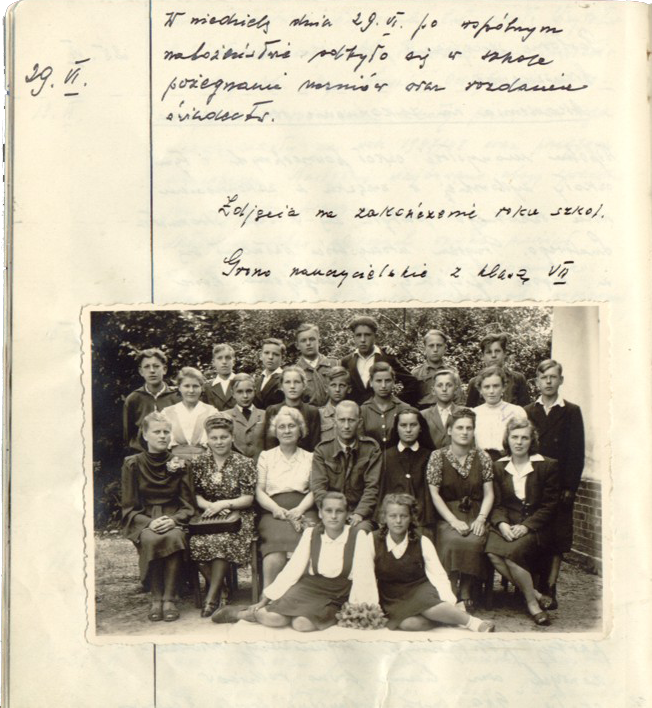 29. VI.
W niedzielę dnia 29. VI. po wspólnym
nabożeństwie odbyło się w szkole
pożegnanie uczniów oraz rozdanie
świadectw.
Zdjęcia na zakończenie roku szkol.
Grono nauczycielskie z klasą VII